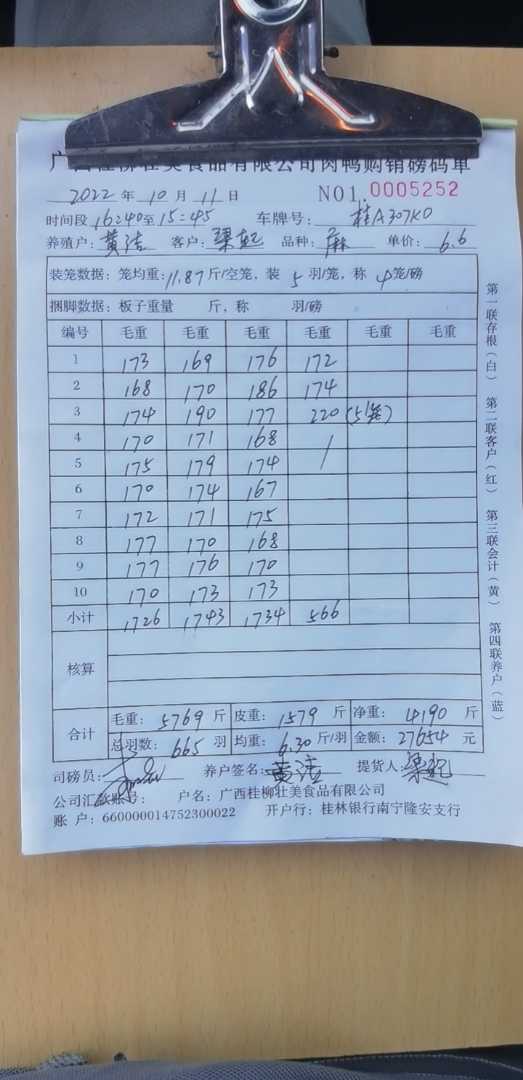 广西桂柳壮美食品有限公司肉鸭购销磅码单
2022 年 10 月 11 日 NO1 0005252
时间段 16:40 至 15:45 车牌号: 桂A307K0
养殖户: 黄洁 客户: 梁起 品种: 麻 单价: 6.6
装笼数据: 笼均重: 11.87 斤/空笼, 装 5 羽/笼, 称 4 笼/磅
捆脚数据: 板子重量 斤, 称 羽/磅
编号 毛重 毛重 毛重 毛重 毛重 毛重
1 173 169 176 172
2 168 170 186 174
3 174 190 177 220 (5笼)
4 170 171 168 /
5 175 179 174
6 170 174 167
7 172 171 175
8 177 170 168
9 177 176 170
10 170 173 173
小计 1726 1743 1734 566
核算
合计 毛重: 5769 斤 皮重: 1579 斤 净重: 4190 斤
总羽数: 665 羽 均重: 6.30 斤/羽 金额: 27654 元
司磅员: 养户签名: 黄洁 提货人: 梁起
公司汇款账号: 户名: 广西桂柳壮美食品有限公司
账 户: 660000014752300022 开户行: 桂林银行南宁隆安支行
第一联存根(白) 第二联客户(红) 第三联会计(黄) 第四联养户(蓝)